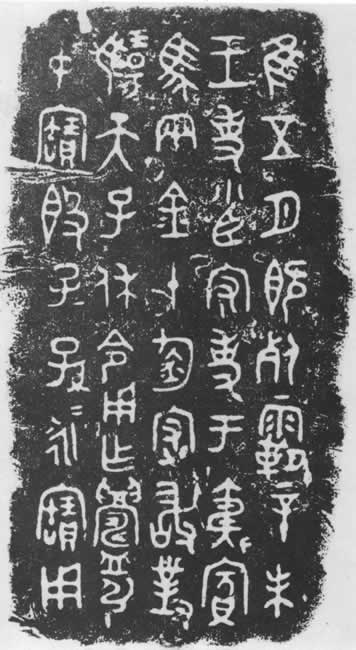 隹五月既死霸辛未
王吏小臣守吏于夷賓
馬兩金十鈞守敢對
揚天子休令用乍鑄引
中寶𣪘子孫＝永寶用